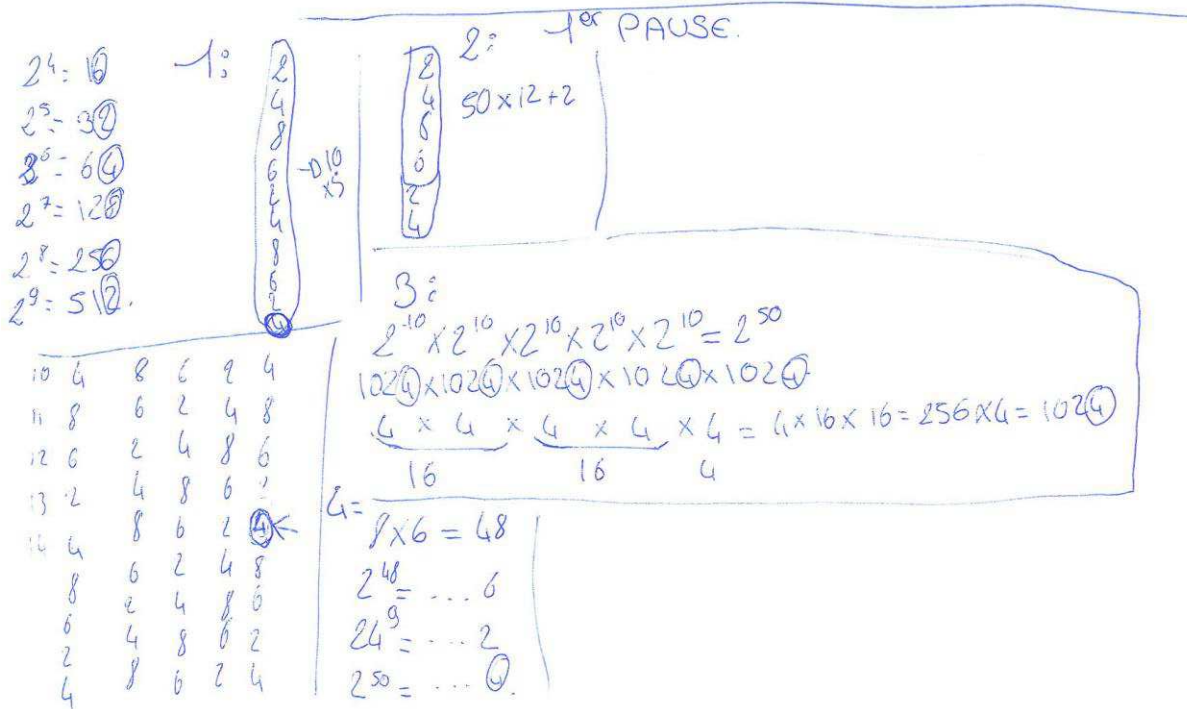 1er PAUSE.
2⁴= 16
2⁵= 32
2⁶= 64
2⁷= 128
2⁸= 256
2⁹= 512.
1:
2
4
8
6
2
4
8
6
2
4
→10
x5
2:
2
4
8
6
2
4
50x12+2
3:
2¹⁰x2¹⁰x2¹⁰x2¹⁰x2¹⁰=2⁵⁰
1024x1024x1024x1024x1024
4 x 4 x 4 x 4 x 4 = 4x16x16=256x4=1024
16 16 4
10 4 8 6 2 4
11 8 6 2 4 8
12 6 2 4 8 6
13 2 4 8 6
14 4 8 6 2 4
8 6 2 4 8
6 2 4 8 6
2 4 8 6 2
4 8 6 2 4
4=
8x6=48
2⁴⁸= ... 6
24⁹= ... 2
2⁵⁰= ... 4.